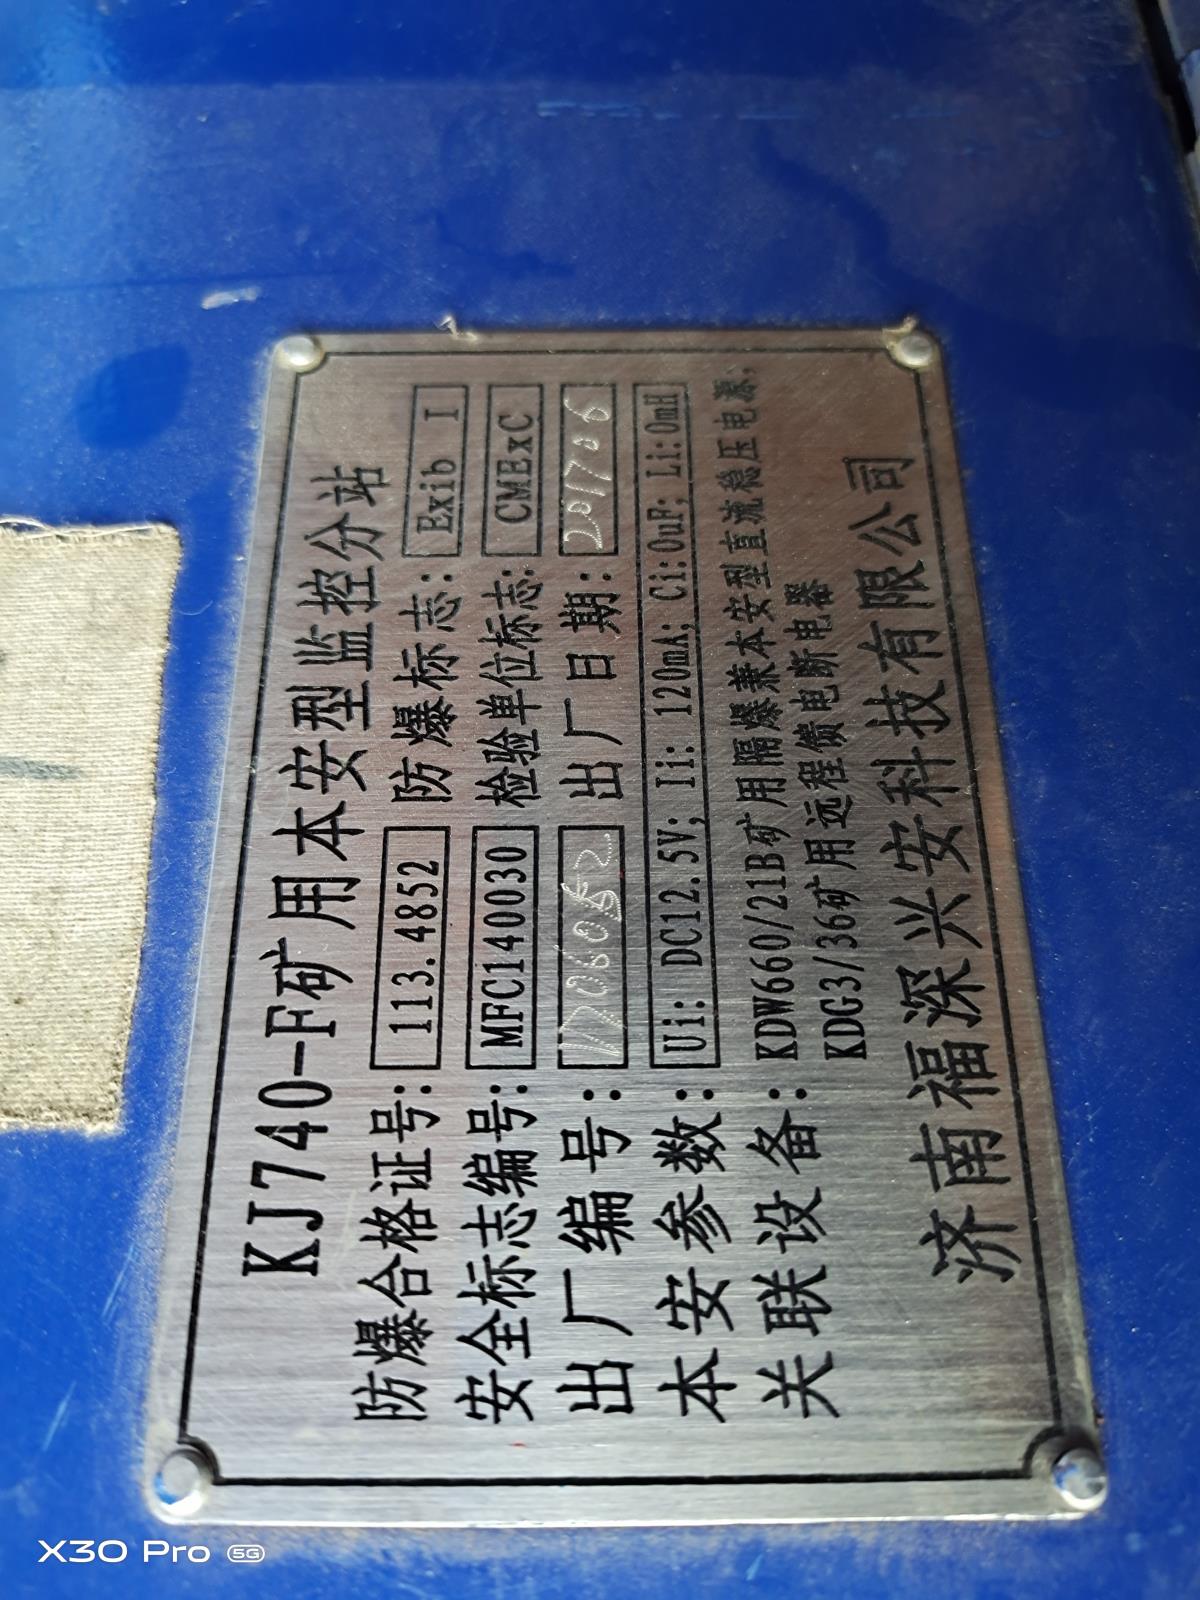 KJ740-F矿用本安型监控分站
防爆合格证号: 113.4852 防爆标志: Exib I
安全标志编号: MFC140030 检验单位标志: CMExC
出厂编号: 出厂日期: 201706
本安参数: Ui: DC12.5V; Ii: 120mA; Ci:0uF; Li:0mH
关联设备: KDW660/21B矿用隔爆兼本安型直流稳压电源,
KDG3/36矿用远程馈电断电器
济南福深兴安科技有限公司
X30 Pro 5G